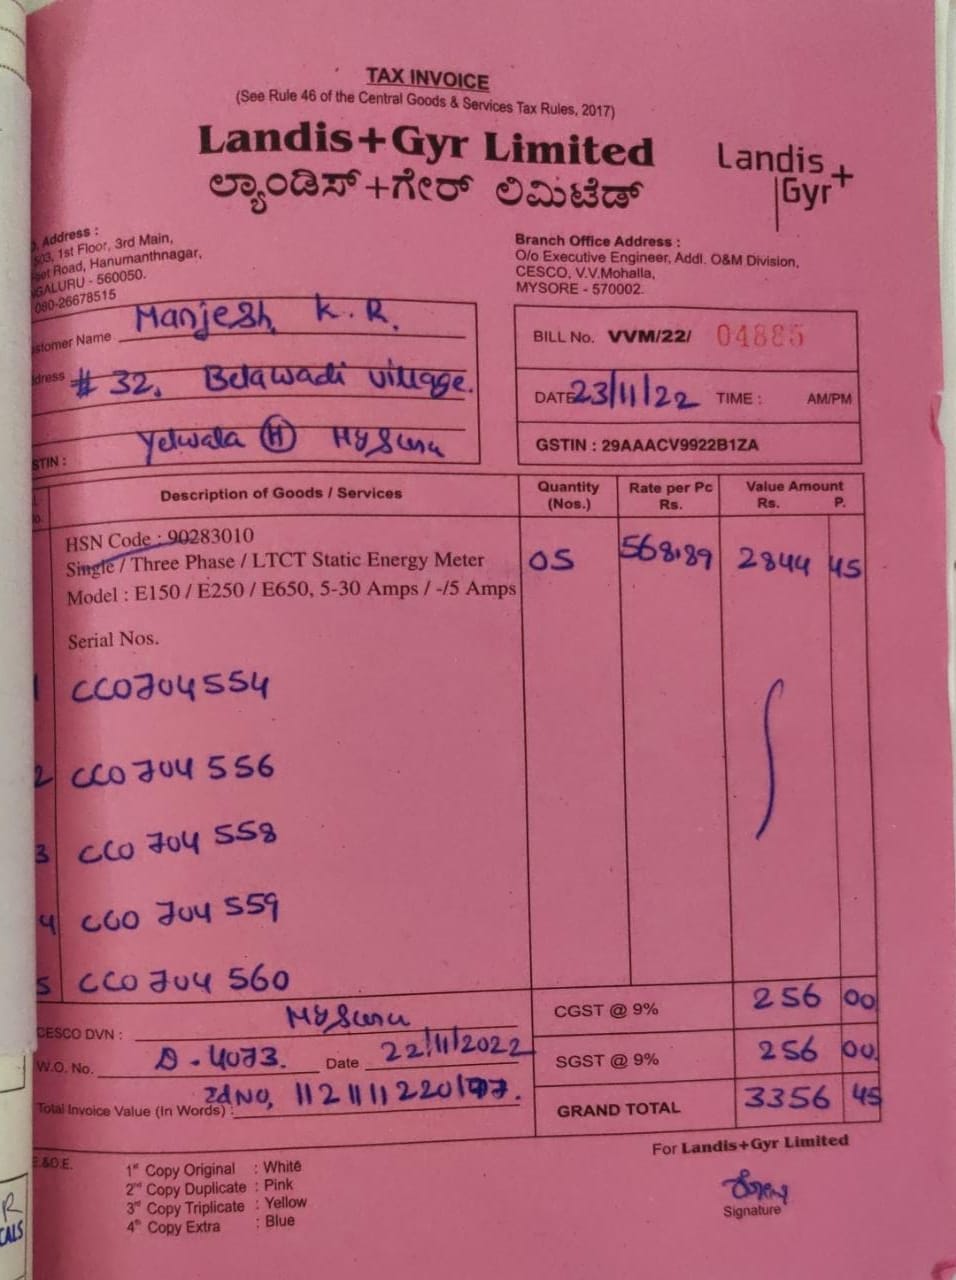 TAX INVOICE
(See Rule 46 of the Central Goods & Services Tax Rules, 2017)
Landis+Gyr Limited
ಲ್ಯಾಂಡಿಸ್+ಗೇರ್ ಲಿಮಿಟೆಡ್
Landis+
Gyr
Address :
503, 1st Floor, 3rd Main,
Road, Hanumanthnagar,
GALURU - 560050.
080-26678515
Branch Office Address :
O/o Executive Engineer, Addl. O&M Division,
CESCO, V.V.Mohalla,
MYSORE - 570002.
stomer Name Manjesh K.R.
dress # 32, Belawadi village.
Yelwala (H) Mysuru
STIN :
BILL No. VVM/22/ 04885
DATE 23/11/22 TIME : AM/PM
GSTIN : 29AAACV9922B1ZA
Description of Goods / Services Quantity (Nos.) Rate per Pc Rs. Value Amount Rs. P.
HSN Code : 90283010
Single / Three Phase / LTCT Static Energy Meter 05 568.89 2844 45
Model : E150 / E250 / E650, 5-30 Amps / -/5 Amps
Serial Nos.
1 CC0704554
2 CC0704556
3 CC0704558
4 CC0704559
5 CC0704560
CESCO DVN : Mysuru
CGST @ 9% 256 00
W.O. No. D-4073. Date 22/11/2022
SGST @ 9% 256 00
IdNO,
Total Invoice Value (In Words) :
GRAND TOTAL 3356 45
E.&O.E.
1st Copy Original : White
2nd Copy Duplicate : Pink
3rd Copy Triplicate : Yellow
4th Copy Extra : Blue
For Landis+Gyr Limited
Signature